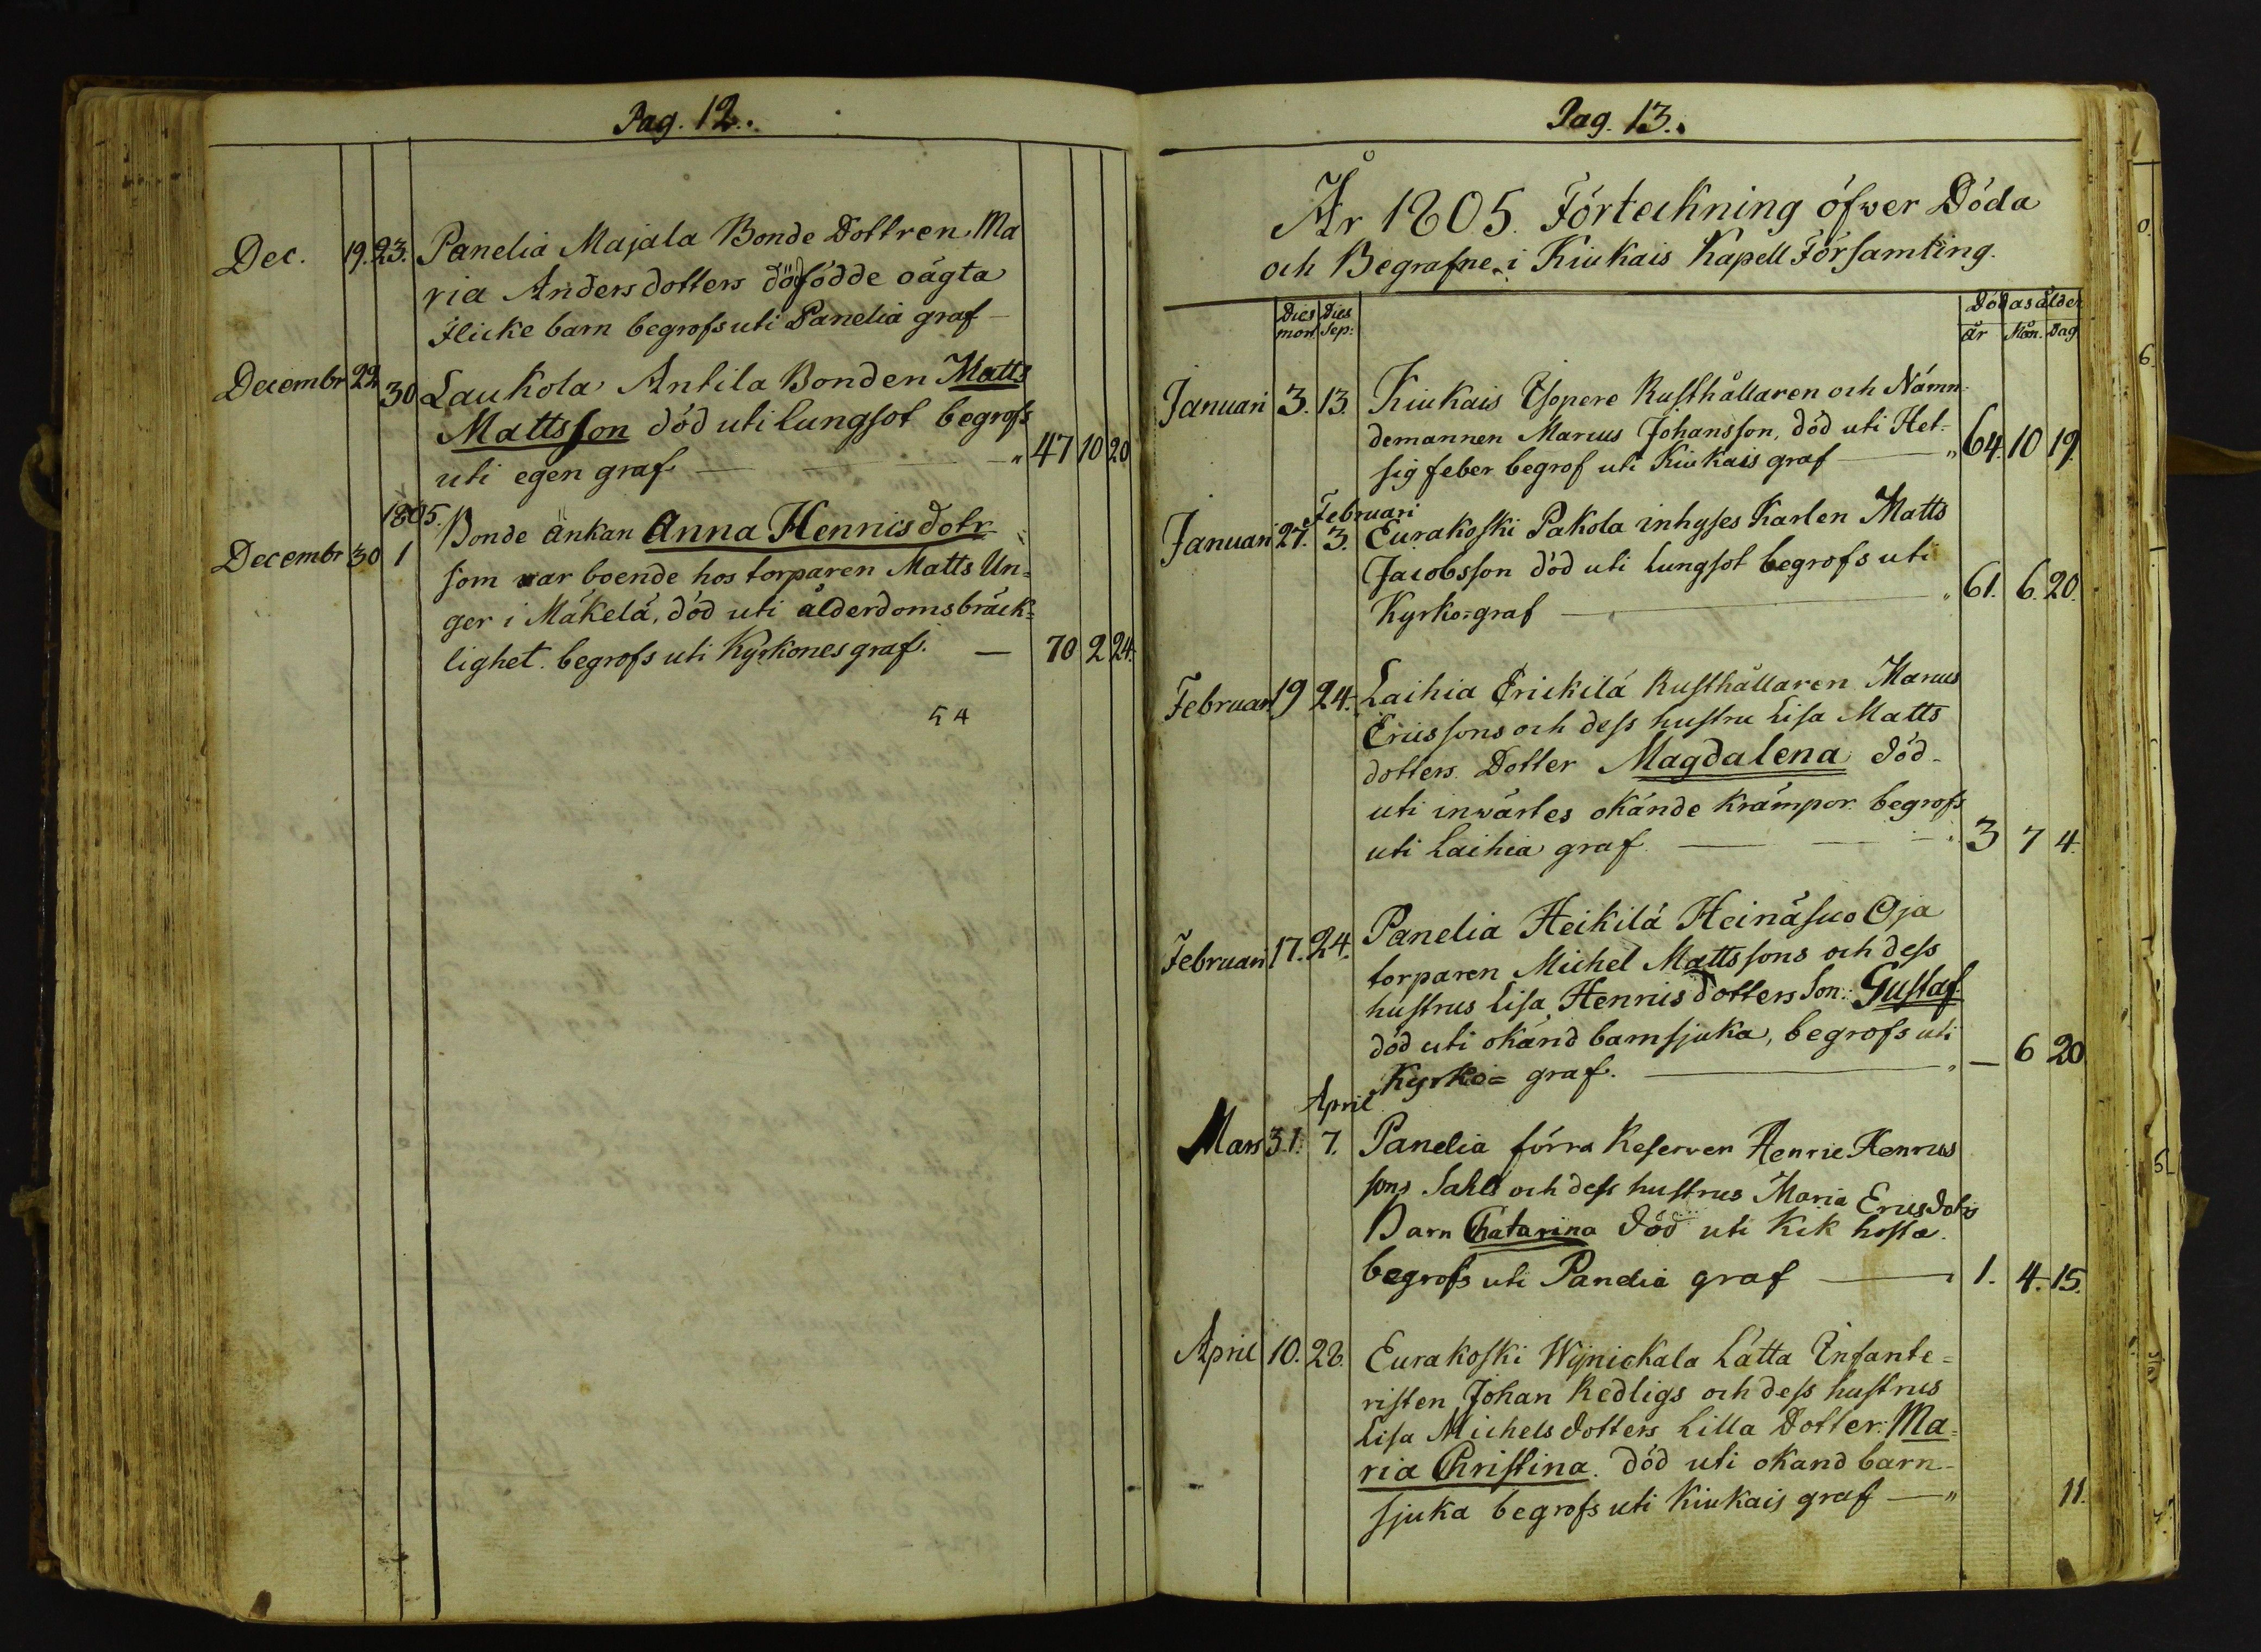 Pag. 12.
Dec. 19. 23. Panelia Majala Bonde Dottren Ma
ria Andersdotters dödfödde oägta
Flicke barn begrofs uti Panelia graf —
Decembr 22 30 Laukola Antila Bonden Matts
Mattsson död uti lungsot begrofs
uti egen graf — — — " 47 10 20
1805.
Decembr 30 1 Bonde änkan Anna Henricsdotr
som war boende hos torparen Matts Un=
ger i Mäkelä, död uti ålderdomsbräck=
lighet. begrofs uti Kyrkones graf. — 70 2 24.
54
Pag. 13.
År 1805. Förteckning öfwer Döda
och Begrafne i Kiukais Kapell Församling.
Dies mort Dies Sep: Dödas ålder
år Mån. Dag
Januari 3. 13. Kiukais Isopere Rusthållaren och Nämn=
demannen Marcus Johansson, död uti Het=
sig feber begrof uti Kiukais graf — " 64. 10 19.
Februari
Januari 27. 3. Eurakoski Pakola inhyses Karlen Matts
Jacobsson död uti lungsot begrofs uti
Kyrko=graf — " 61. 6. 20.
Februari 19 24. Laihia Erickilä Rusthållaren Marcus
Ericssons och dess hustru Lisa Matts
dotters Dotter Magdalena död
uti inwärtes okände krämpor begrofs
uti Laihia graf — — — 3 7 4.
Februari 17. 24. Panelia Heikilä Heinäsuo Oja
torparen Michel Mattssons och dess
hustrus Lisa Henricsdotters Son: Gustaf
död uti okänd barnsjuka, begrofs uti
Kyrko= graf. — — 6 20
April
Mars 31. 7. Panelia förra Reserven Henric Henrics
sons Sahls och dess hustrus Maria Ericsdotrs
Barn Chatarina död uti Kik hosta.
begrofs uti Panelia graf — 1. 4. 15.
April 10. 28. Eurakoski Wijnickala Lätta Infante=
risten Johan Redligs och dess hustrus
Lisa Michelsdotters Lilla Dotter: Ma=
ria Christina. död uti okand barn-
sjuka begrofs uti Kiukais graf — " 11.